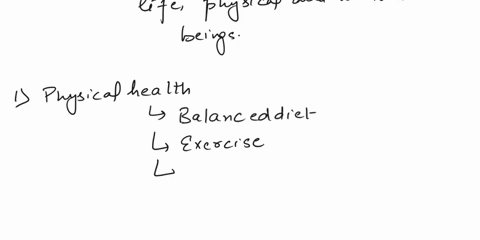 life, physical
beings.
1) Physical health
↳ Balanced diet
↳ Exercise
↳